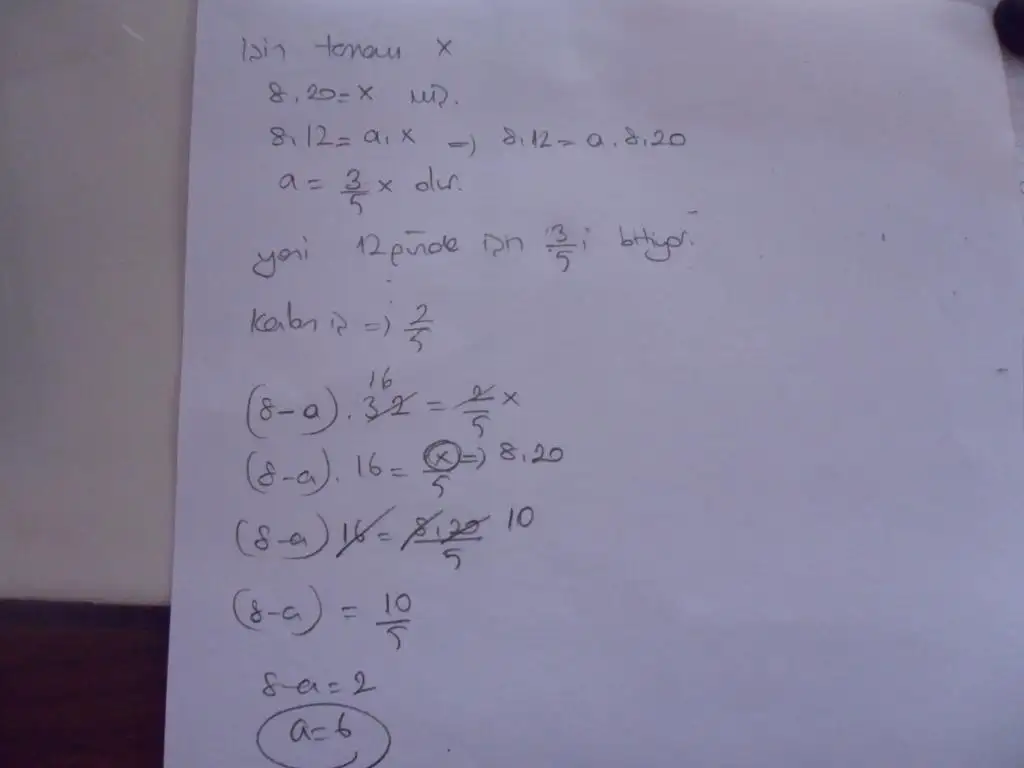 işin tamamı x
8.20=x tir.
8.12=a.x => 8.12=a.8.20
a = 3/5 x dir.
yani 12 günde işin 3/5 i bitiyor.
Kalan iş => 2/5
16
(8-a).32 = 2/5 x
(8-a).16 = x/5 => 8.20
(8-a) 16 = 8.20/5 10
(8-a) = 10/5
8-a=2
a=6